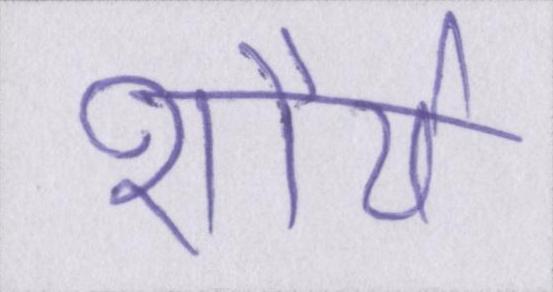 शौर्य